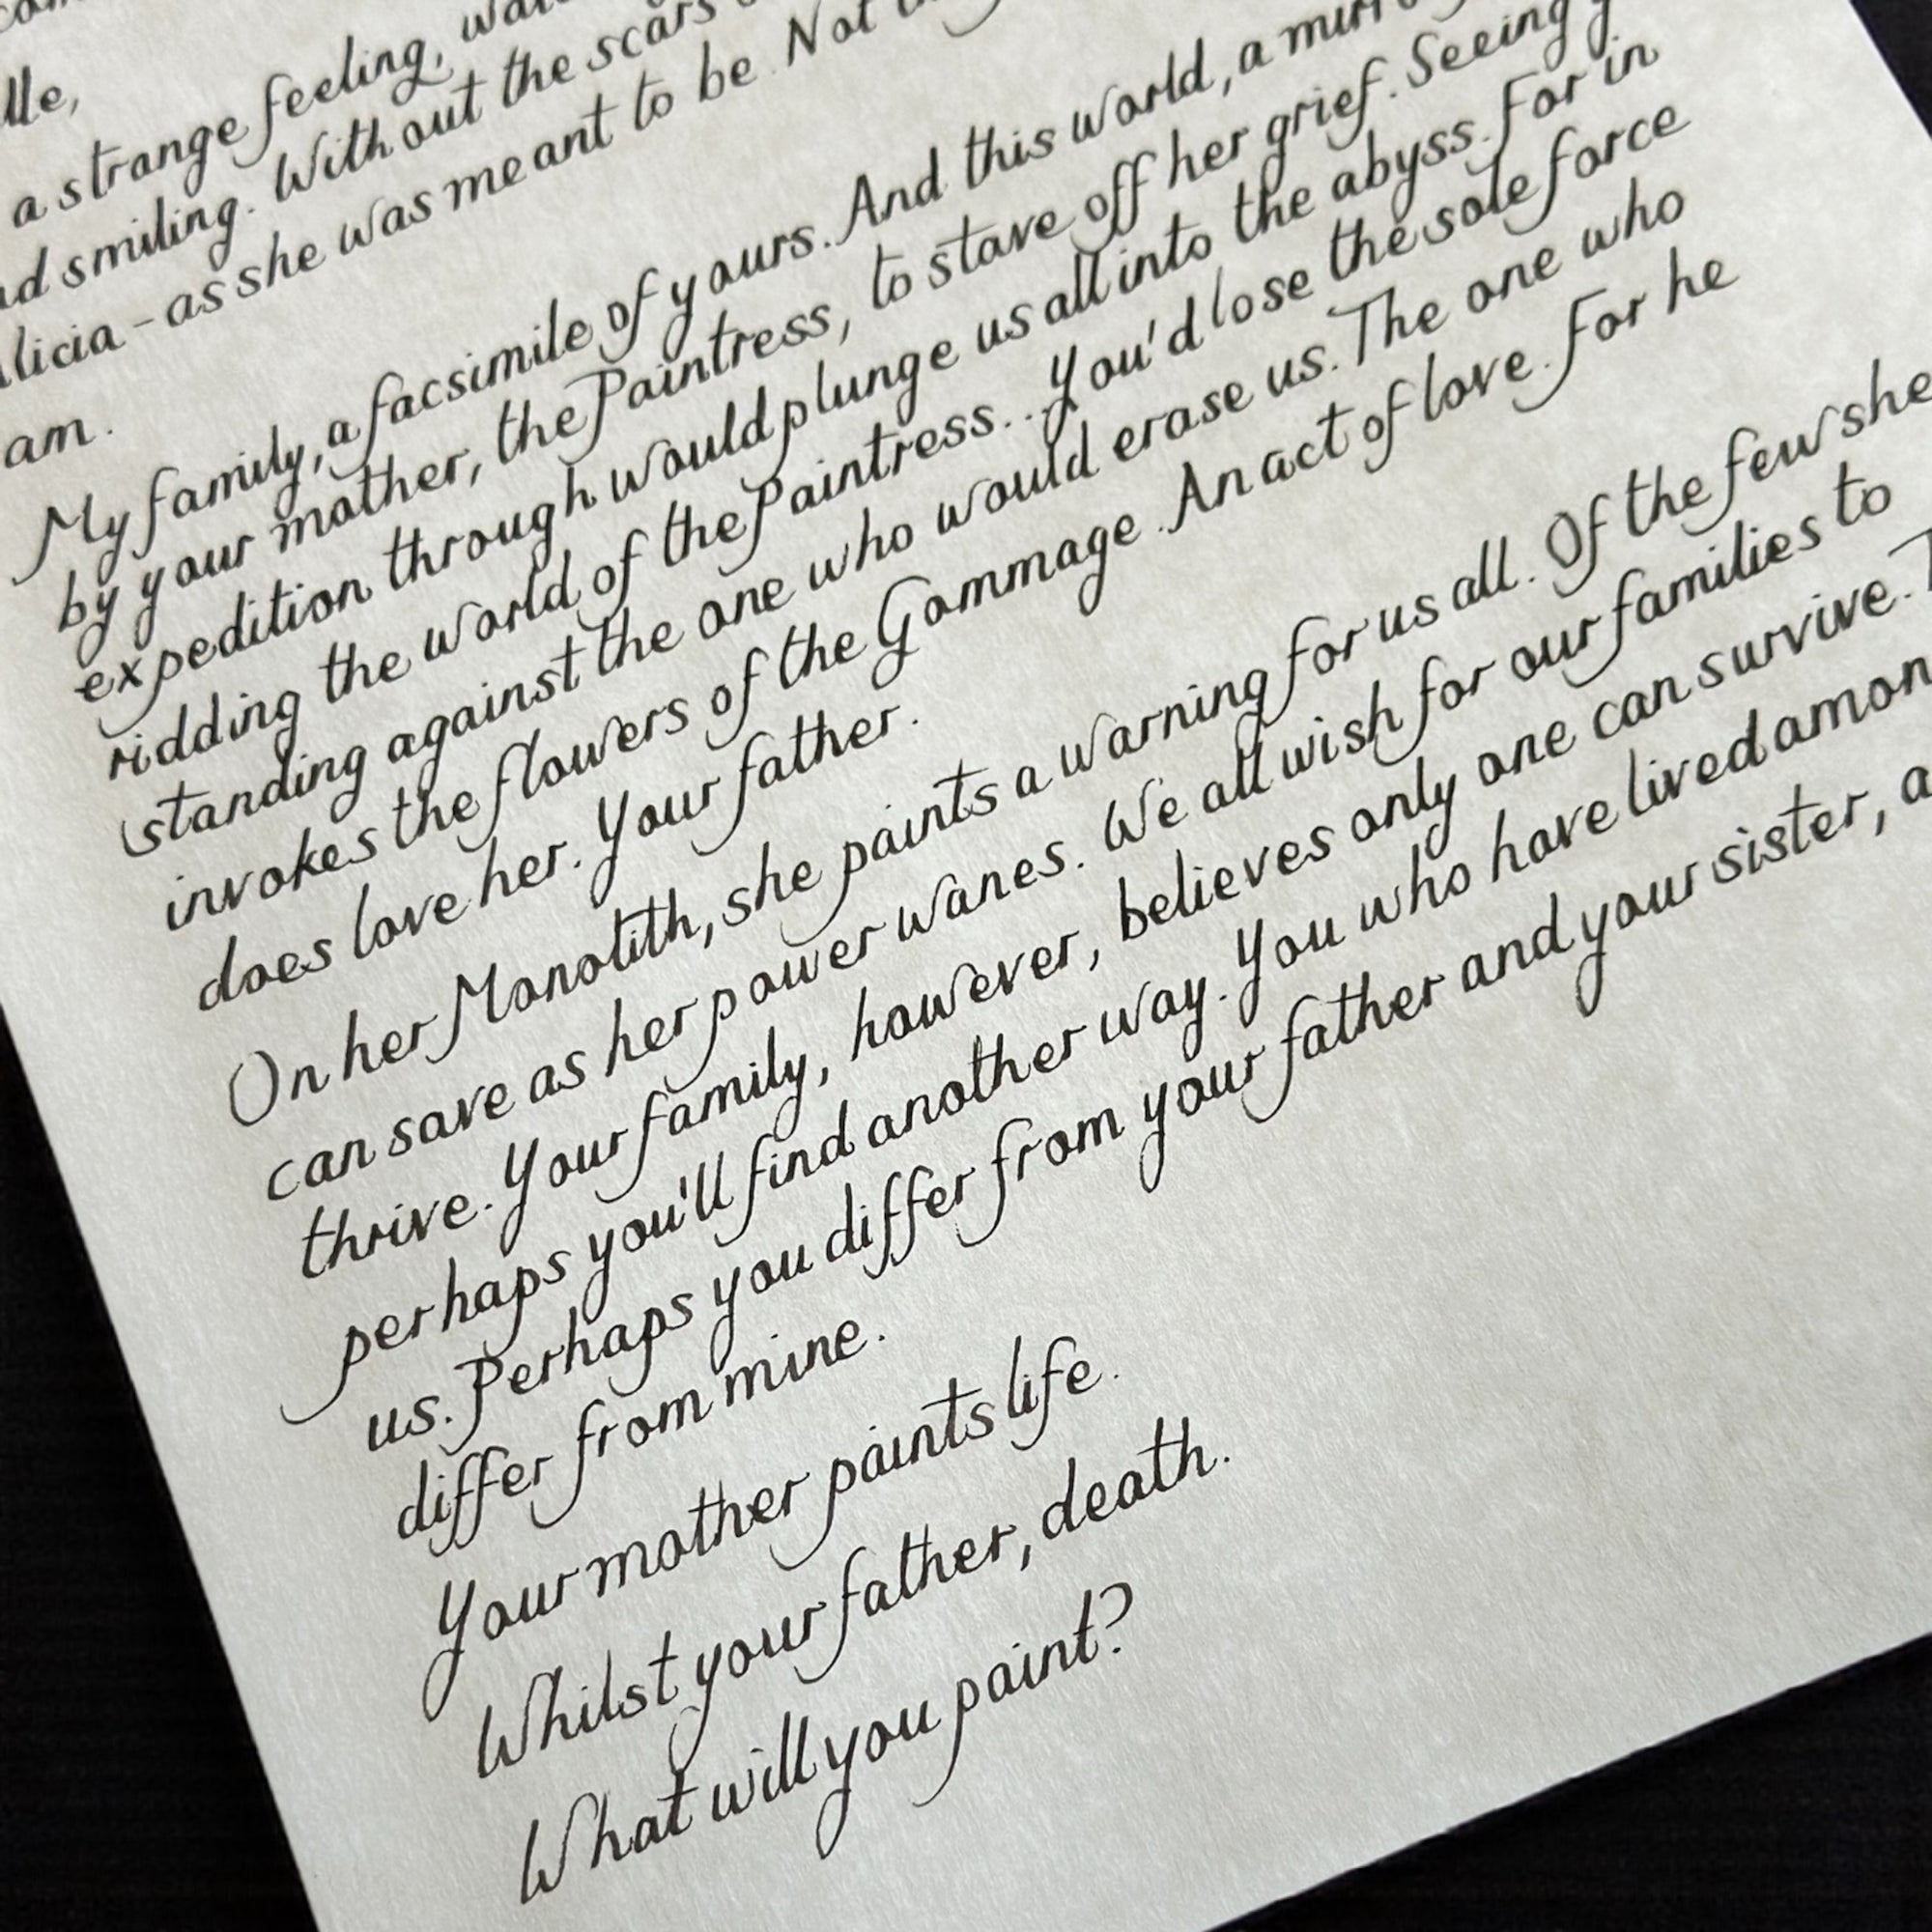 a strange feeling,
smiling. Without the scars
as she was meant to be. Not
am.
My family, a facsimile of yours. And this world, a
by your mother, the Paintress, to stave off her grief. Seeing
expedition through would plunge us all into the abyss. For in
ridding the world of the Paintress... you'd lose the sole force
standing against the one who would erase us. The one who
invokes the flowers of the Gommage. An act of love. For he
does love her. Your father.
On her Monolith, she paints a warning for us all. Of the few she
can save as her power wanes. We all wish for our families to
thrive. Your family, however, believes only one can survive.
perhaps you'll find another way. You who have lived
us. Perhaps you differ from your father and your sister,
differ from mine.
Your mother paints life.
Whilst your father, death.
What will you paint?